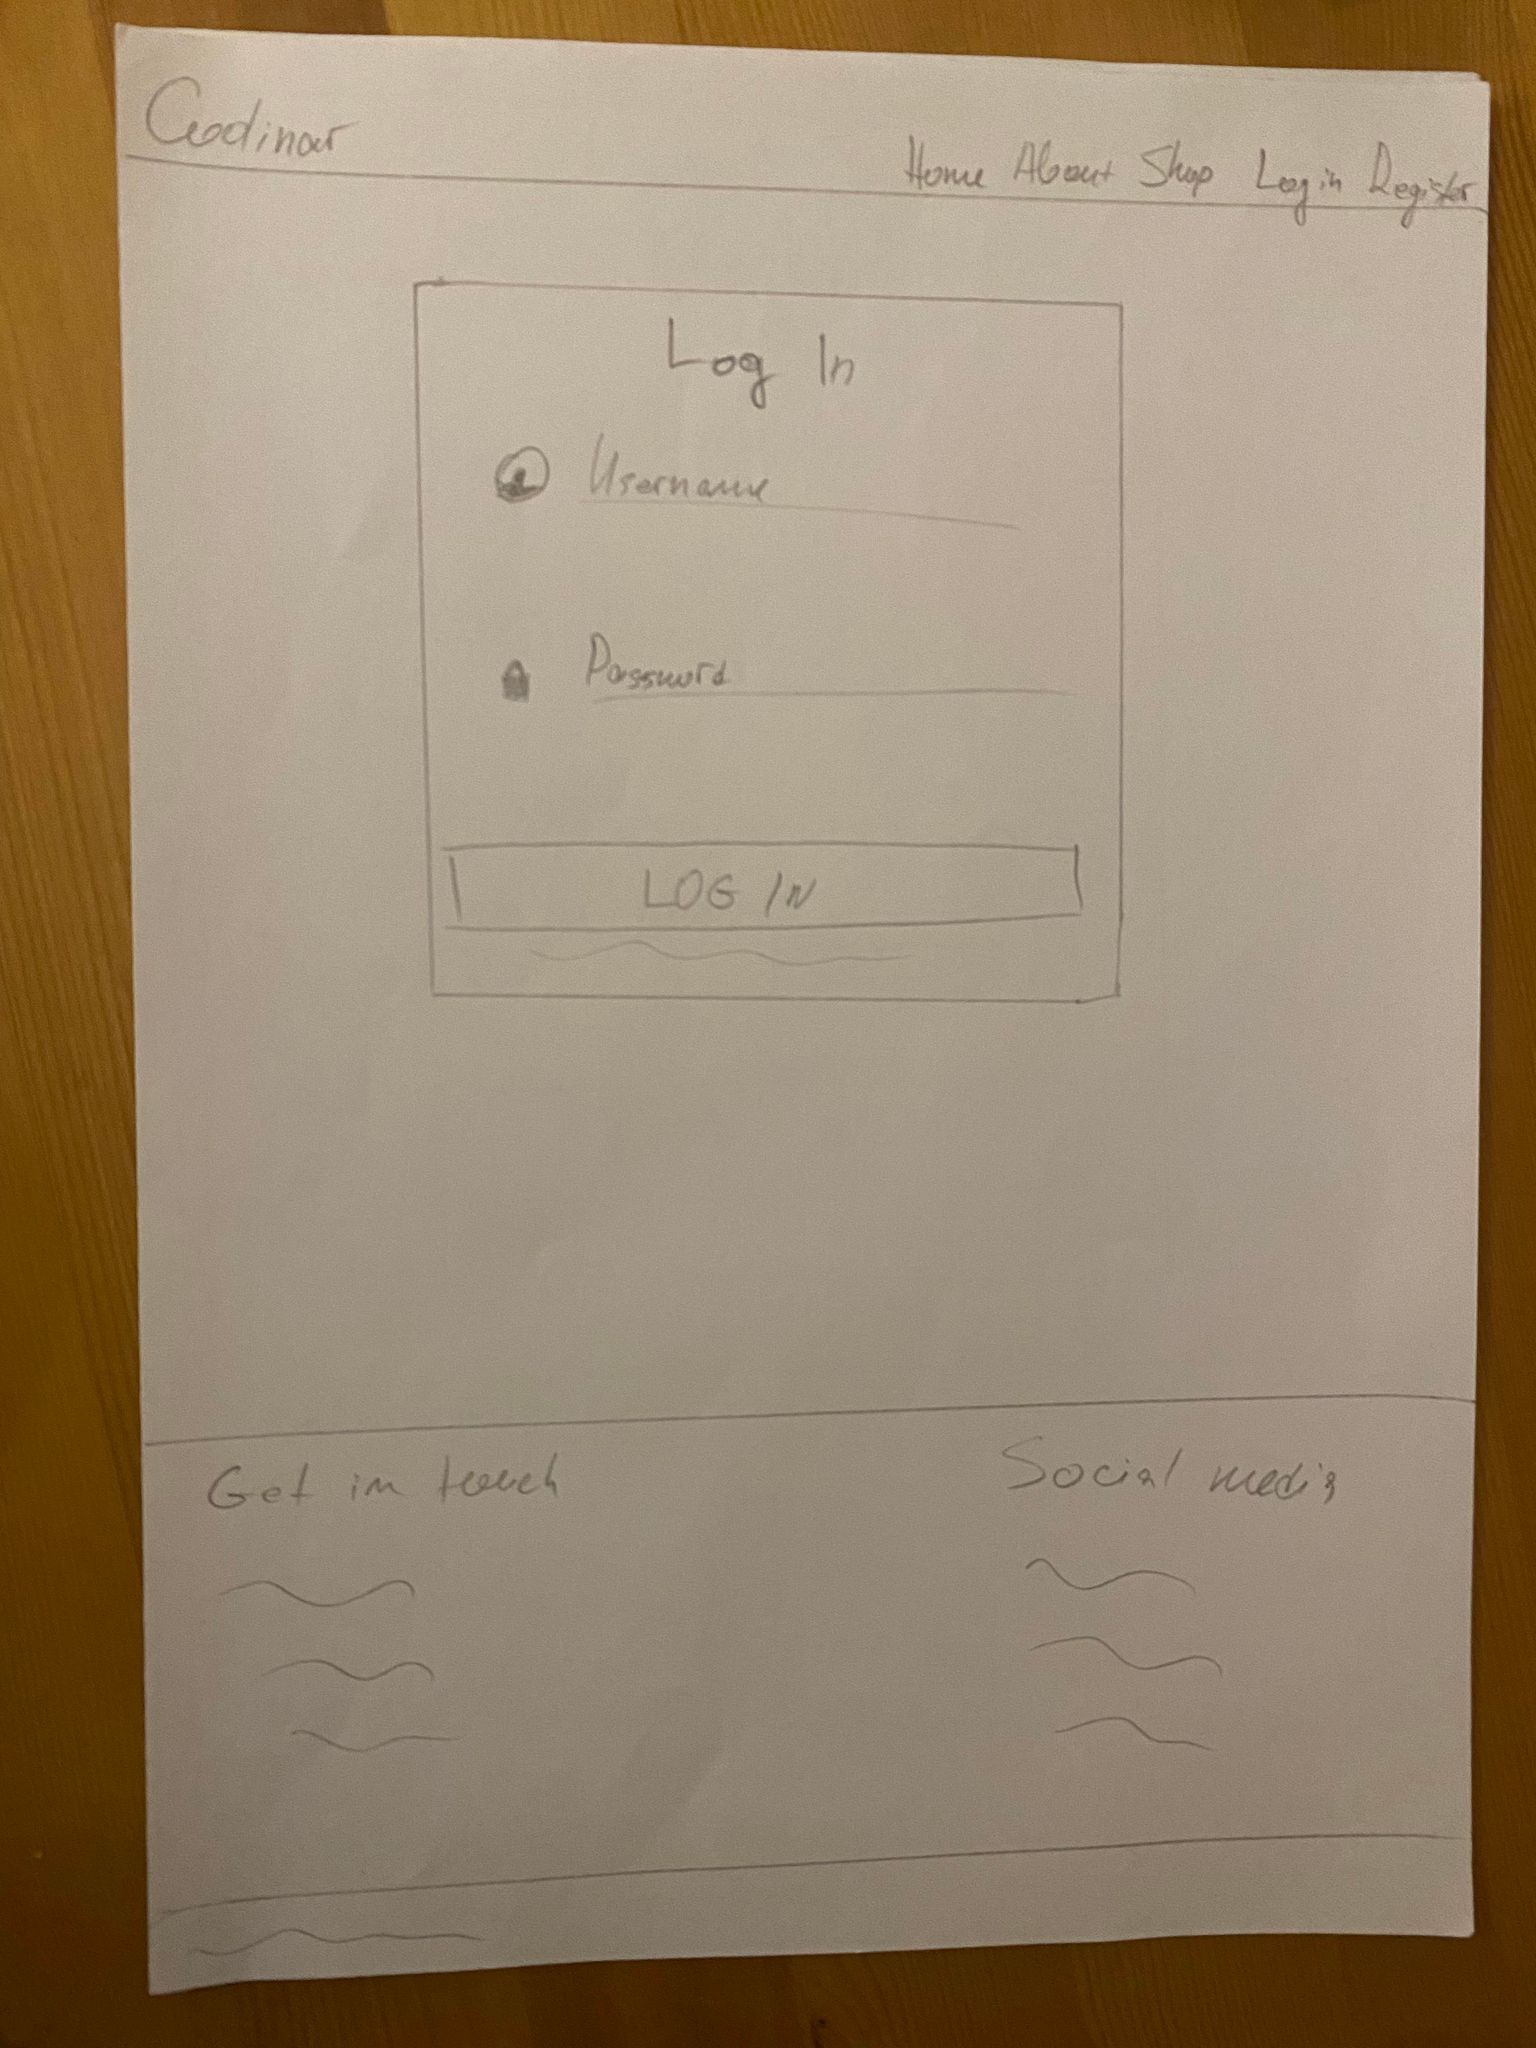 Codinar
Home About Shop Log in Register
Log In
Username
Password
LOG IN
Get in touch
Social media